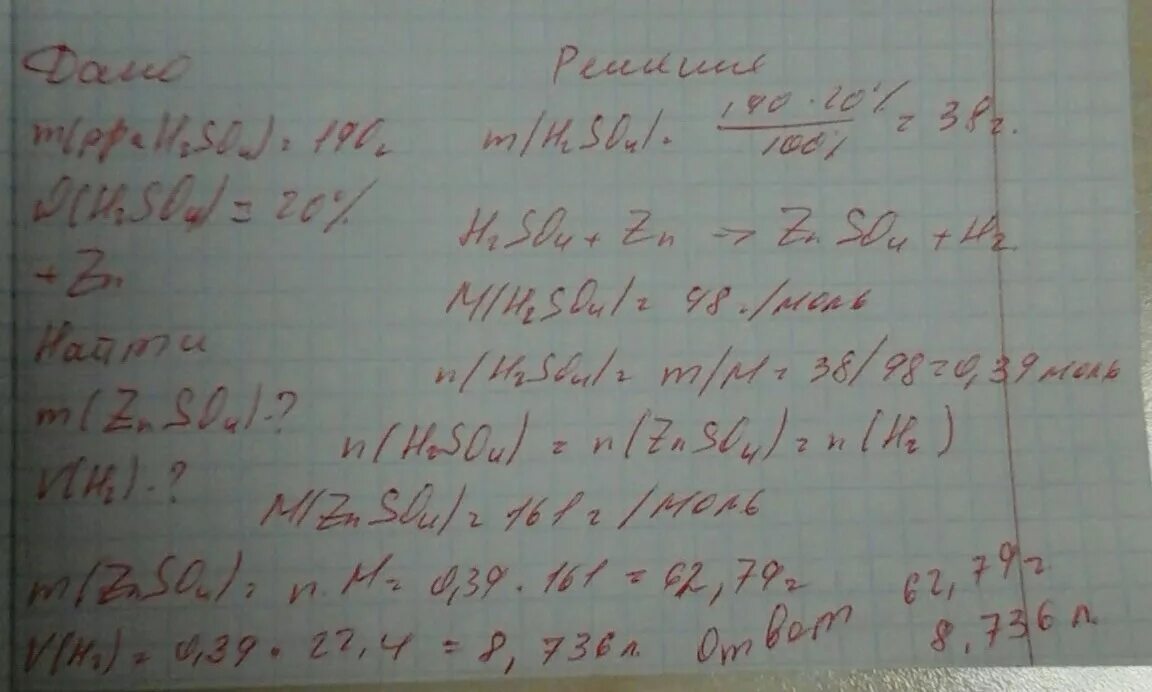 Дано
m(р-ра H₂SO₄) = 190г
ω(H₂SO₄) = 20%
+ Zn
Найти
m(ZnSO₄)-?
V(H₂)-?
Решение
m(H₂SO₄) = 190 · 20% / 100% = 38г.
H₂SO₄ + Zn → ZnSO₄ + H₂
M(H₂SO₄) = 98г/моль
n(H₂SO₄) = m/M = 38/98 = 0,39 моль
n(H₂SO₄) = n(ZnSO₄) = n(H₂)
M(ZnSO₄) = 161г/моль
m(ZnSO₄) = n·M = 0,39 · 161 = 62,79г
V(H₂) = 0,39 · 22,4 = 8,736л
Ответ 62,79г
8,736л